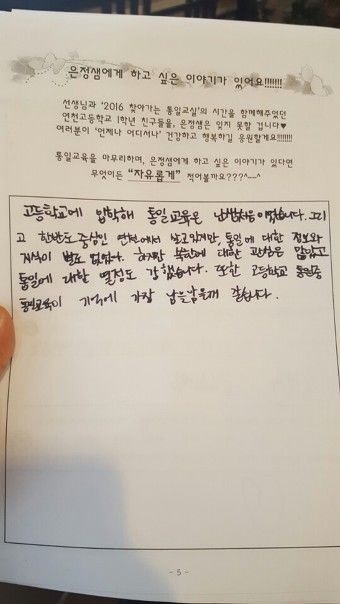 은정샘에게 하고 싶은 이야기가 있어요!!!!!!!
선생님과 '2016 찾아가는 통일교실'의 시간을 함께해주었던
연천고등학교 1학년 친구들을, 은정샘은 잊지 못할 겁니다♥
여러분이 '언제나 어디서나' 건강하고 행복하길 응원할게요!!!!!!!!
통일교육을 마무리하며, 은정샘에게 하고 싶은 이야기가 있다면
무엇이든 "자유롭게" 적어볼까요???^---^
고등학교에 입학해 통일교육은 이었습니다. 그리
고 한반도 중심인 연천에서 살고있지만, 통일에 대한 정보와
지식이 별로 없었다. 하지만 북한에 대한 관심은 많았고
통일에 대한 열정도 강했습니다. 또한 고등학교
통일교육이 기억에 가장 남을 같습니다.
- 5 -